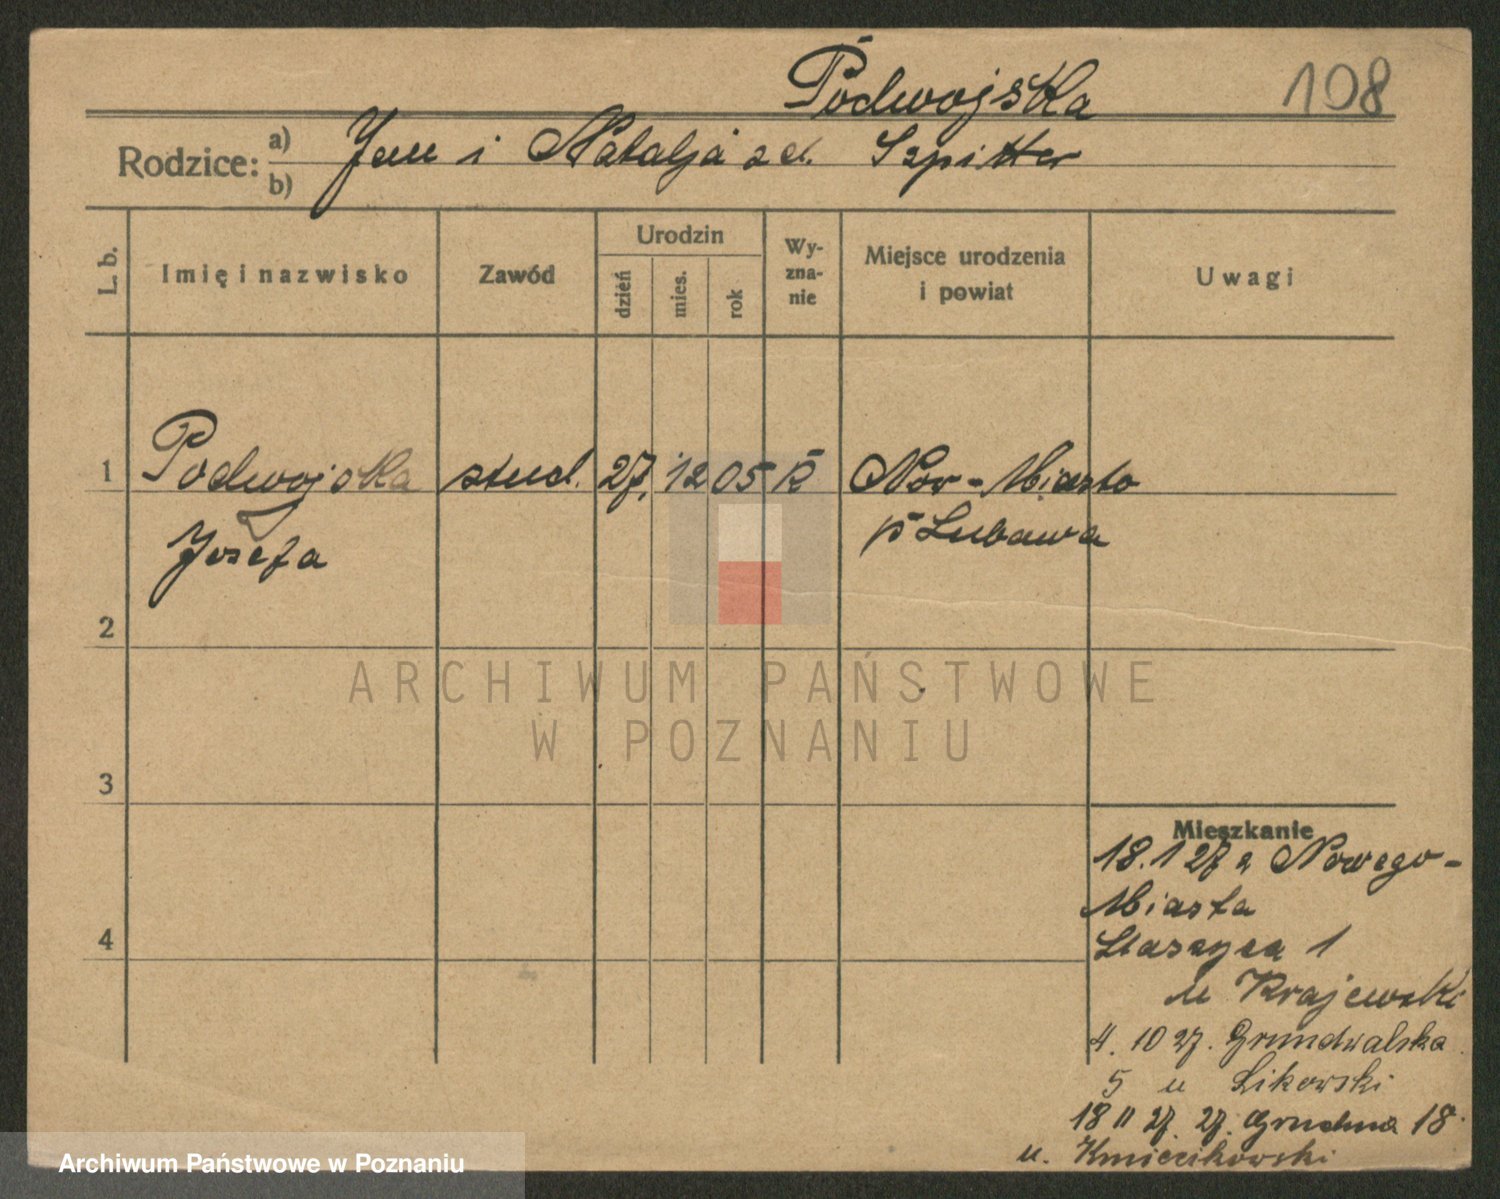 Podwojska
108
Rodzice: a) Jan i Natalja zd. Szpitter
b)
L. b.
Imię i nazwisko
Zawód
Urodzin
dzień
mies.
rok
Wy-
zna-
nie
Miejsce urodzenia
i powiat
Uwagi
1 Podwojska stud. 27. 12 05 R Now-Miasto
Josefa p Lubawa
2
3
4
Mieszkanie
18.1 27 z Nowego-
Miasta
Staszyca 1
u Krajewski
4. 10 27. Grundwalska
5 u Likowski
18 11 27 27. Grudnia 18
u. Kmiecikowski
ARCHIWUM PAŃSTWOWE
W POZNANIU
Archiwum Państwowe w Poznaniu